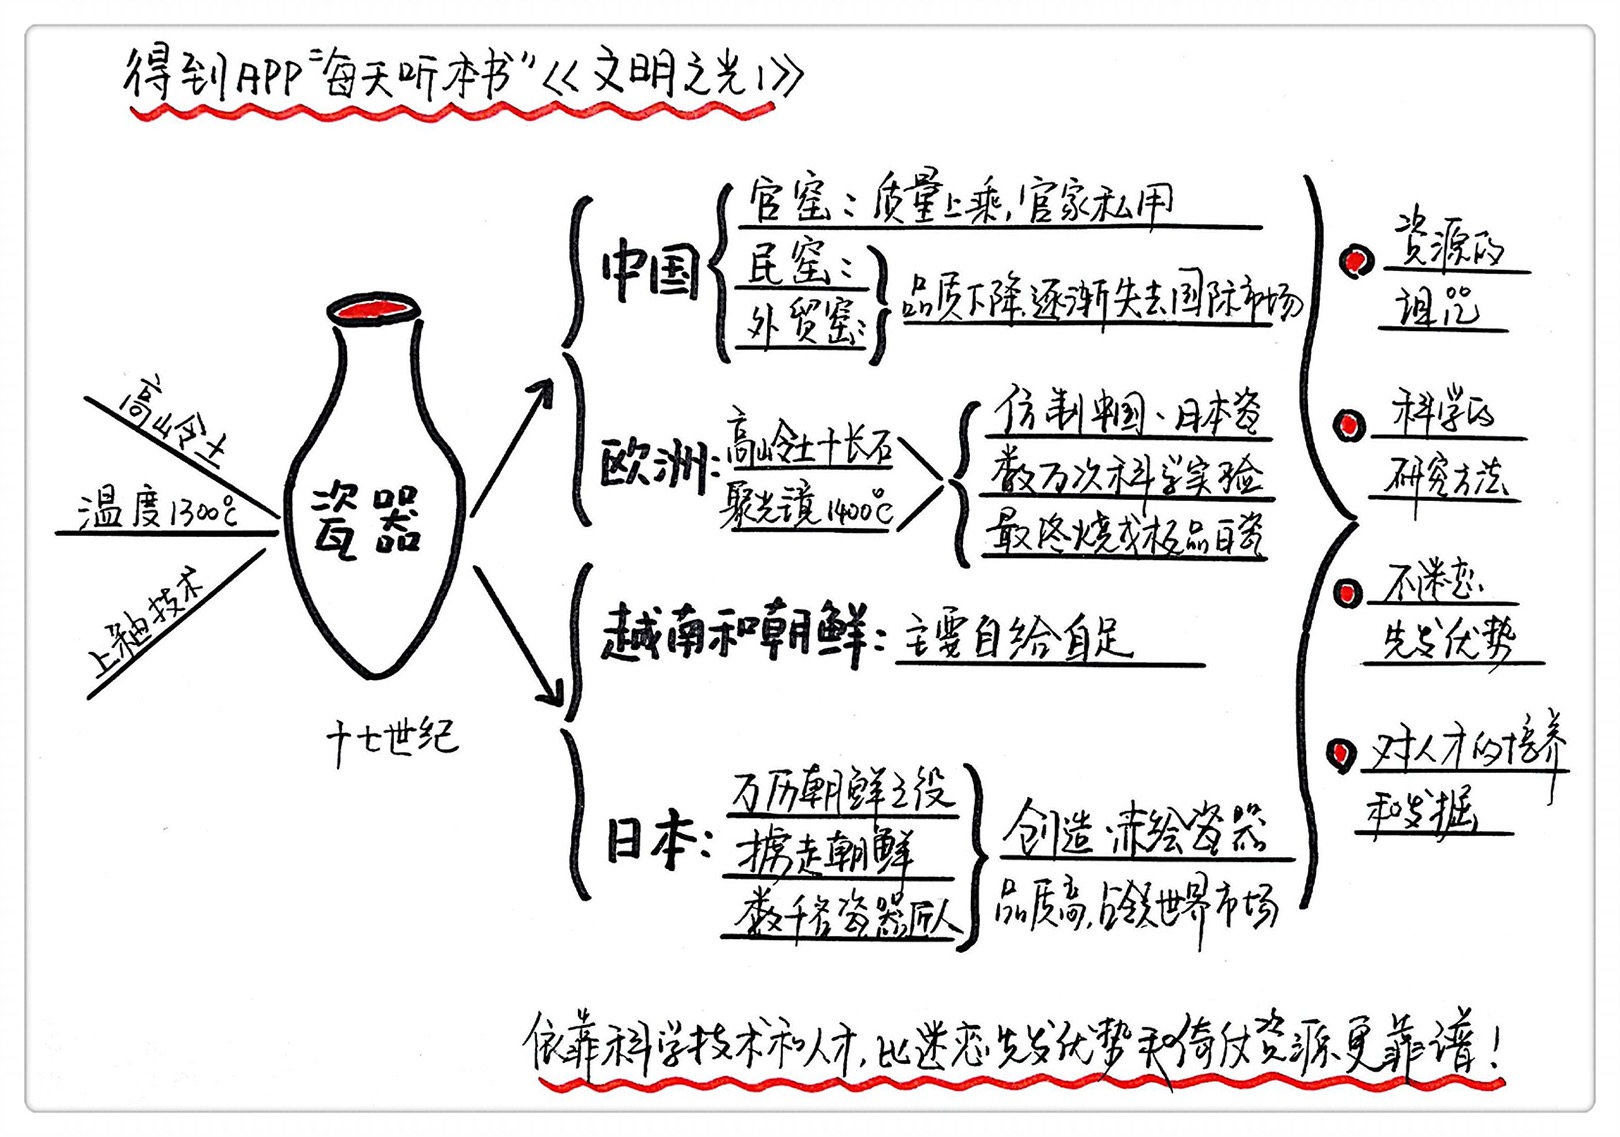 得到APP"每天听本书"《文明之光1》
高岭土
温度1300℃
上釉技术
瓷器
十七世纪
中国
官窑：质量上乘，官家私用
民窑：
外贸窑：
品质下降，逐渐失去国际市场
欧洲：
高岭土+长石
聚光镜1400℃
仿制中国、日本瓷
数万次科学实验
最终烧成极品白瓷
越南和朝鲜：
主要自给自足
日本：
万历朝鲜之役
掳走朝鲜
数千名瓷器匠人
创造：赤绘瓷器
品质高，占领世界市场
资源的
诅咒
科学的
研究方法
不迷恋
先发优势
对人才的培养
和发掘
依靠科学技术和人才，比迷恋先发优势和倚仗资源更靠谱！